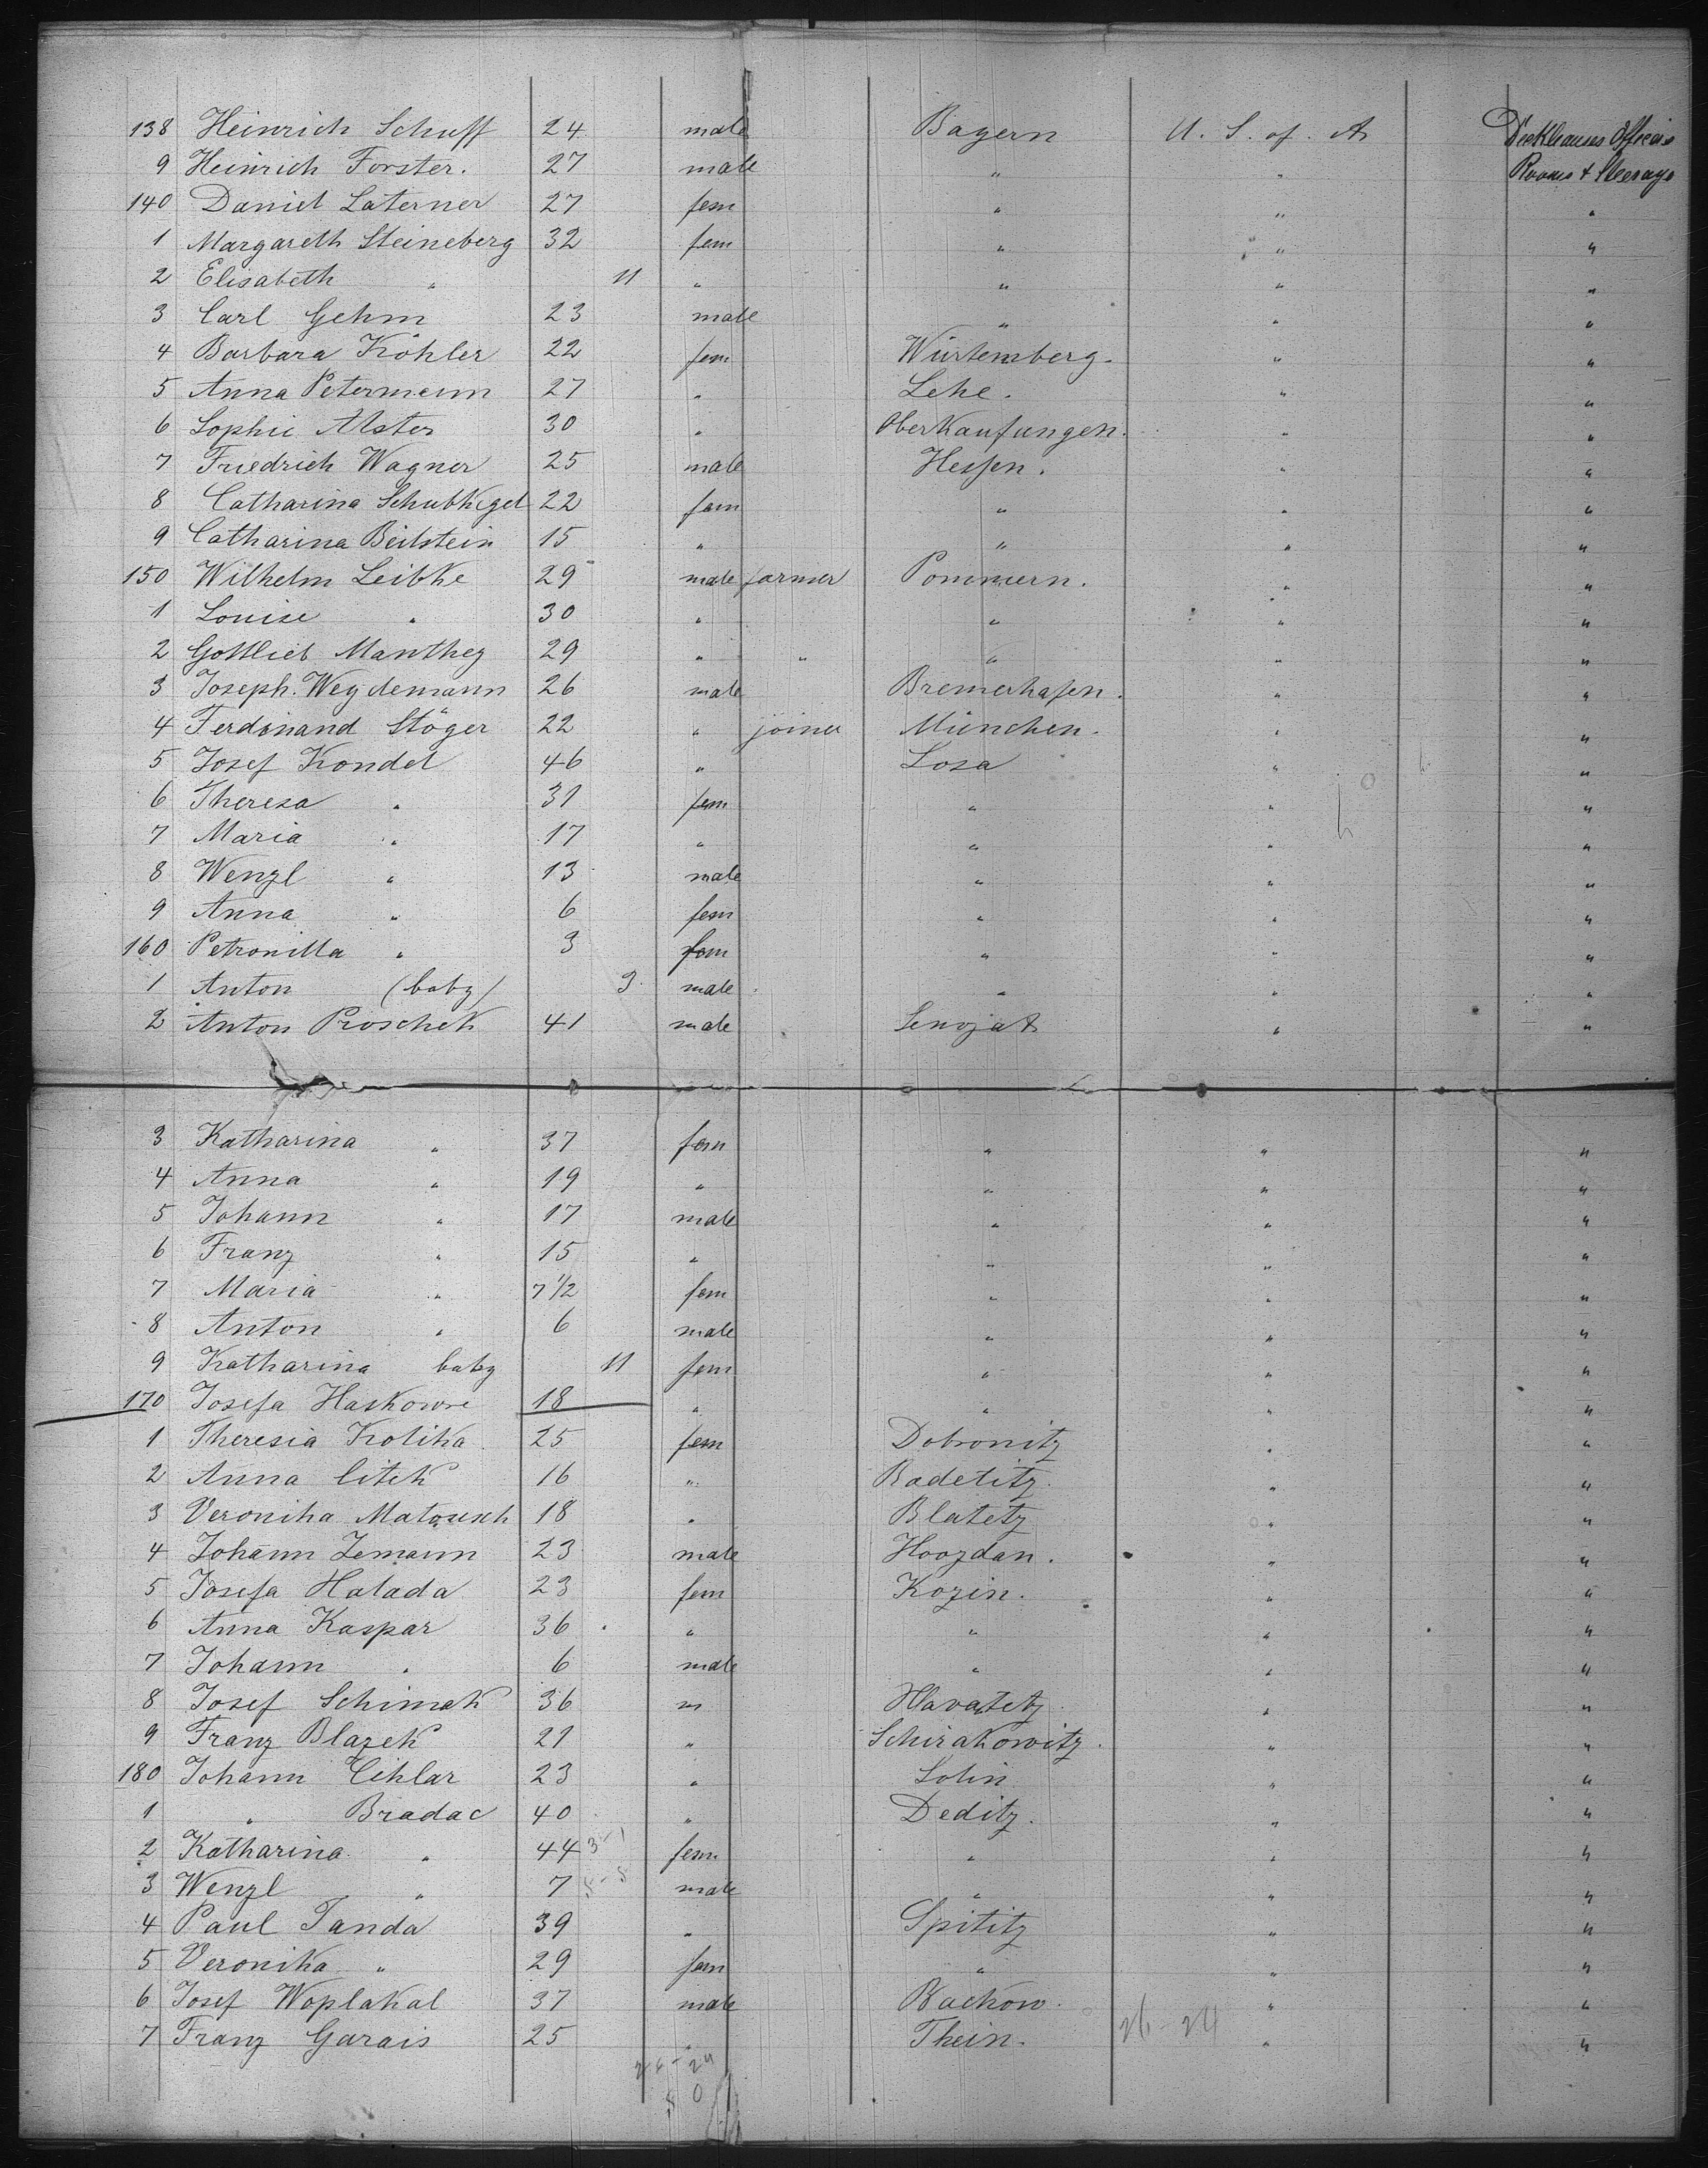 138 Heinrich Schuff 24 male Bayern U. S. of. A Deckhauses Officirs
9 Heinrich Forster. 27 male " " Rooms + Steerage
140 Daniel Laterner 27 fem " " "
1 Margareth Steineberg 32 fem " " "
2 Elisabeth " 11 " " " "
3 Carl Gehm 23 male " " "
4 Barbara Köhler 22 fem Würtemberg. " "
5 Anna Petermann 27 " Lehe. " "
6 Sophie Alster 30 " Oberkaufungen. " "
7 Friedrich Wagner 25 male Hessen. " "
8 Catharina Schubkegel 22 fem " " "
9 Catharina Beilstein 15 " " " "
150 Wilhelm Leibke 29 male farmer Pommern. " "
1 Louise " 30 " " " "
2 Gottlieb Manthey 29 " " " " "
3 Joseph. Wegdemann 26 male Bremerhafen. " "
4 Ferdinand Stöger 22 " joiner München. " "
5 Josef Kondel 46 " Losa " "
6 Theresa " 31 fem " " "
7 Maria " 17 " " " "
8 Wenzl " 13 male " " "
9 Anna " 6 fem " " "
160 Petronilla " 3 fem " " "
1 Anton (baby) 9 male " " "
2 Anton Proschek 41 male " "
3 Katharina " 37 fem " " "
4 Anna " 19 " " " "
5 Johann " 17 male " " "
6 Franz " 15 " " " "
7 Maria " 7 1/2 fem " " "
8 Anton " 6 male " " "
9 Katharina baby 11 fem " " "
170 Josefa Haskowe 18 " " " "
1 Theresia Kolika 25 fem Dobronitz " "
2 Anna Citek 16 " Radetitz. " "
3 Veronika Matousch 18 " Blatetz " "
4 Johann Zemann 23 male Hoozdan. " "
5 Josefa Halada 23 fem Kozin. " "
6 Anna Kaspar 36 " " " "
7 Johann " 6 male " " "
8 Josef Schimak 36 m Havatetz " "
9 Franz Blazek 21 " Schirakowitz. " "
180 Johann Cihlar 23 " Lolin " "
1 " Bradac 40 " Deditz. " "
2 Katharina " 44 fem " " "
3 Wenzl " 7 male " " "
4 Paul Tanda 39 " Spititz " "
5 Veronika " 29 fem " " "
6 Josef Woplakal 37 male Bachow. " "
7 Franz Garais 25 " Thein. 26-24 " "